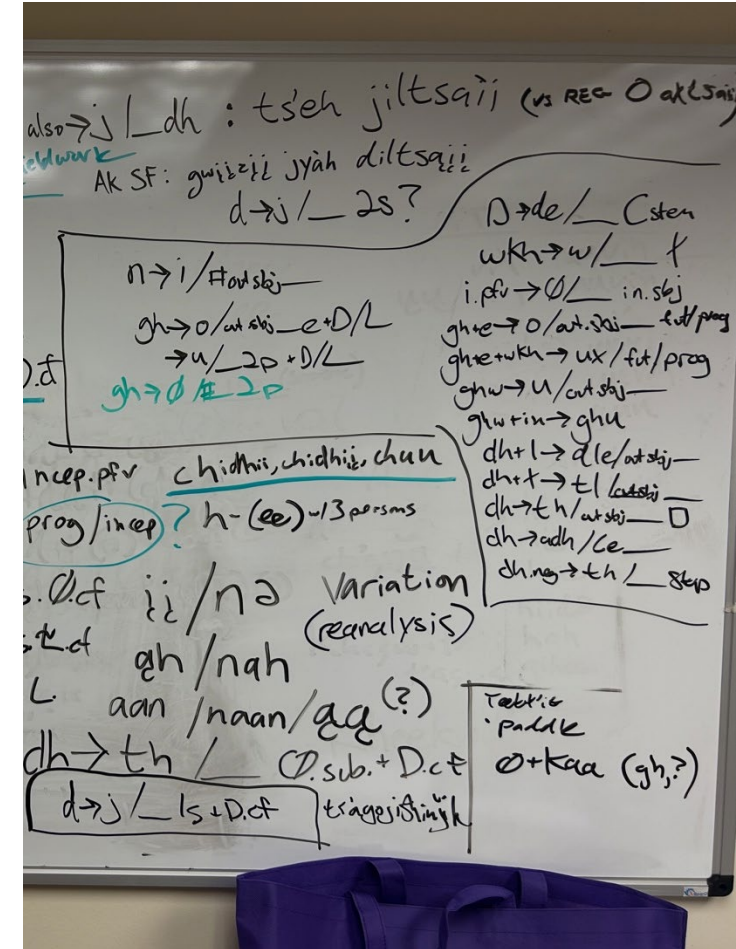 also → j / _ dh : ts'eh jiltsąįį (vs REG O
fieldwork
AK SF: gwįįzįį jyàh diltsąįį
d → j / __ 2s?
n → i / #out.sbj __
gh → o / out.sbj __ e + D/L
→ u / __ 2p + D/L
gh → Ø / # __ 2p
D → de / __ C stem
wkh → w / __ ł
i.pfv → Ø / __ in.sbj
gh+e → o / out.sbj __ fut/prog
gh+e+wkh → ux / fut/prog
ghw → u / out.sbj __
ghw + in → ghu
dh + l → dle / out.sbj __
dh + ł → tl / out.sbj __
dh → th / out.sbj __ D
dh → adh / Ce __
dh.neg → th / __ stop
D.cf
incep.pfv chidhii, chidhįį, chuu
prog/incep ? h-(ee) ~ 13 persons
Ø.cf įį / nə Variation
(reanalysis)
ł.cf ąh / nah
L. aan / naan / ąą (?)
dh → th / __ Ø.sub. + D.cf
d → j / __ 1s + D.cf
paddle
Ø + kaa (gh,?)